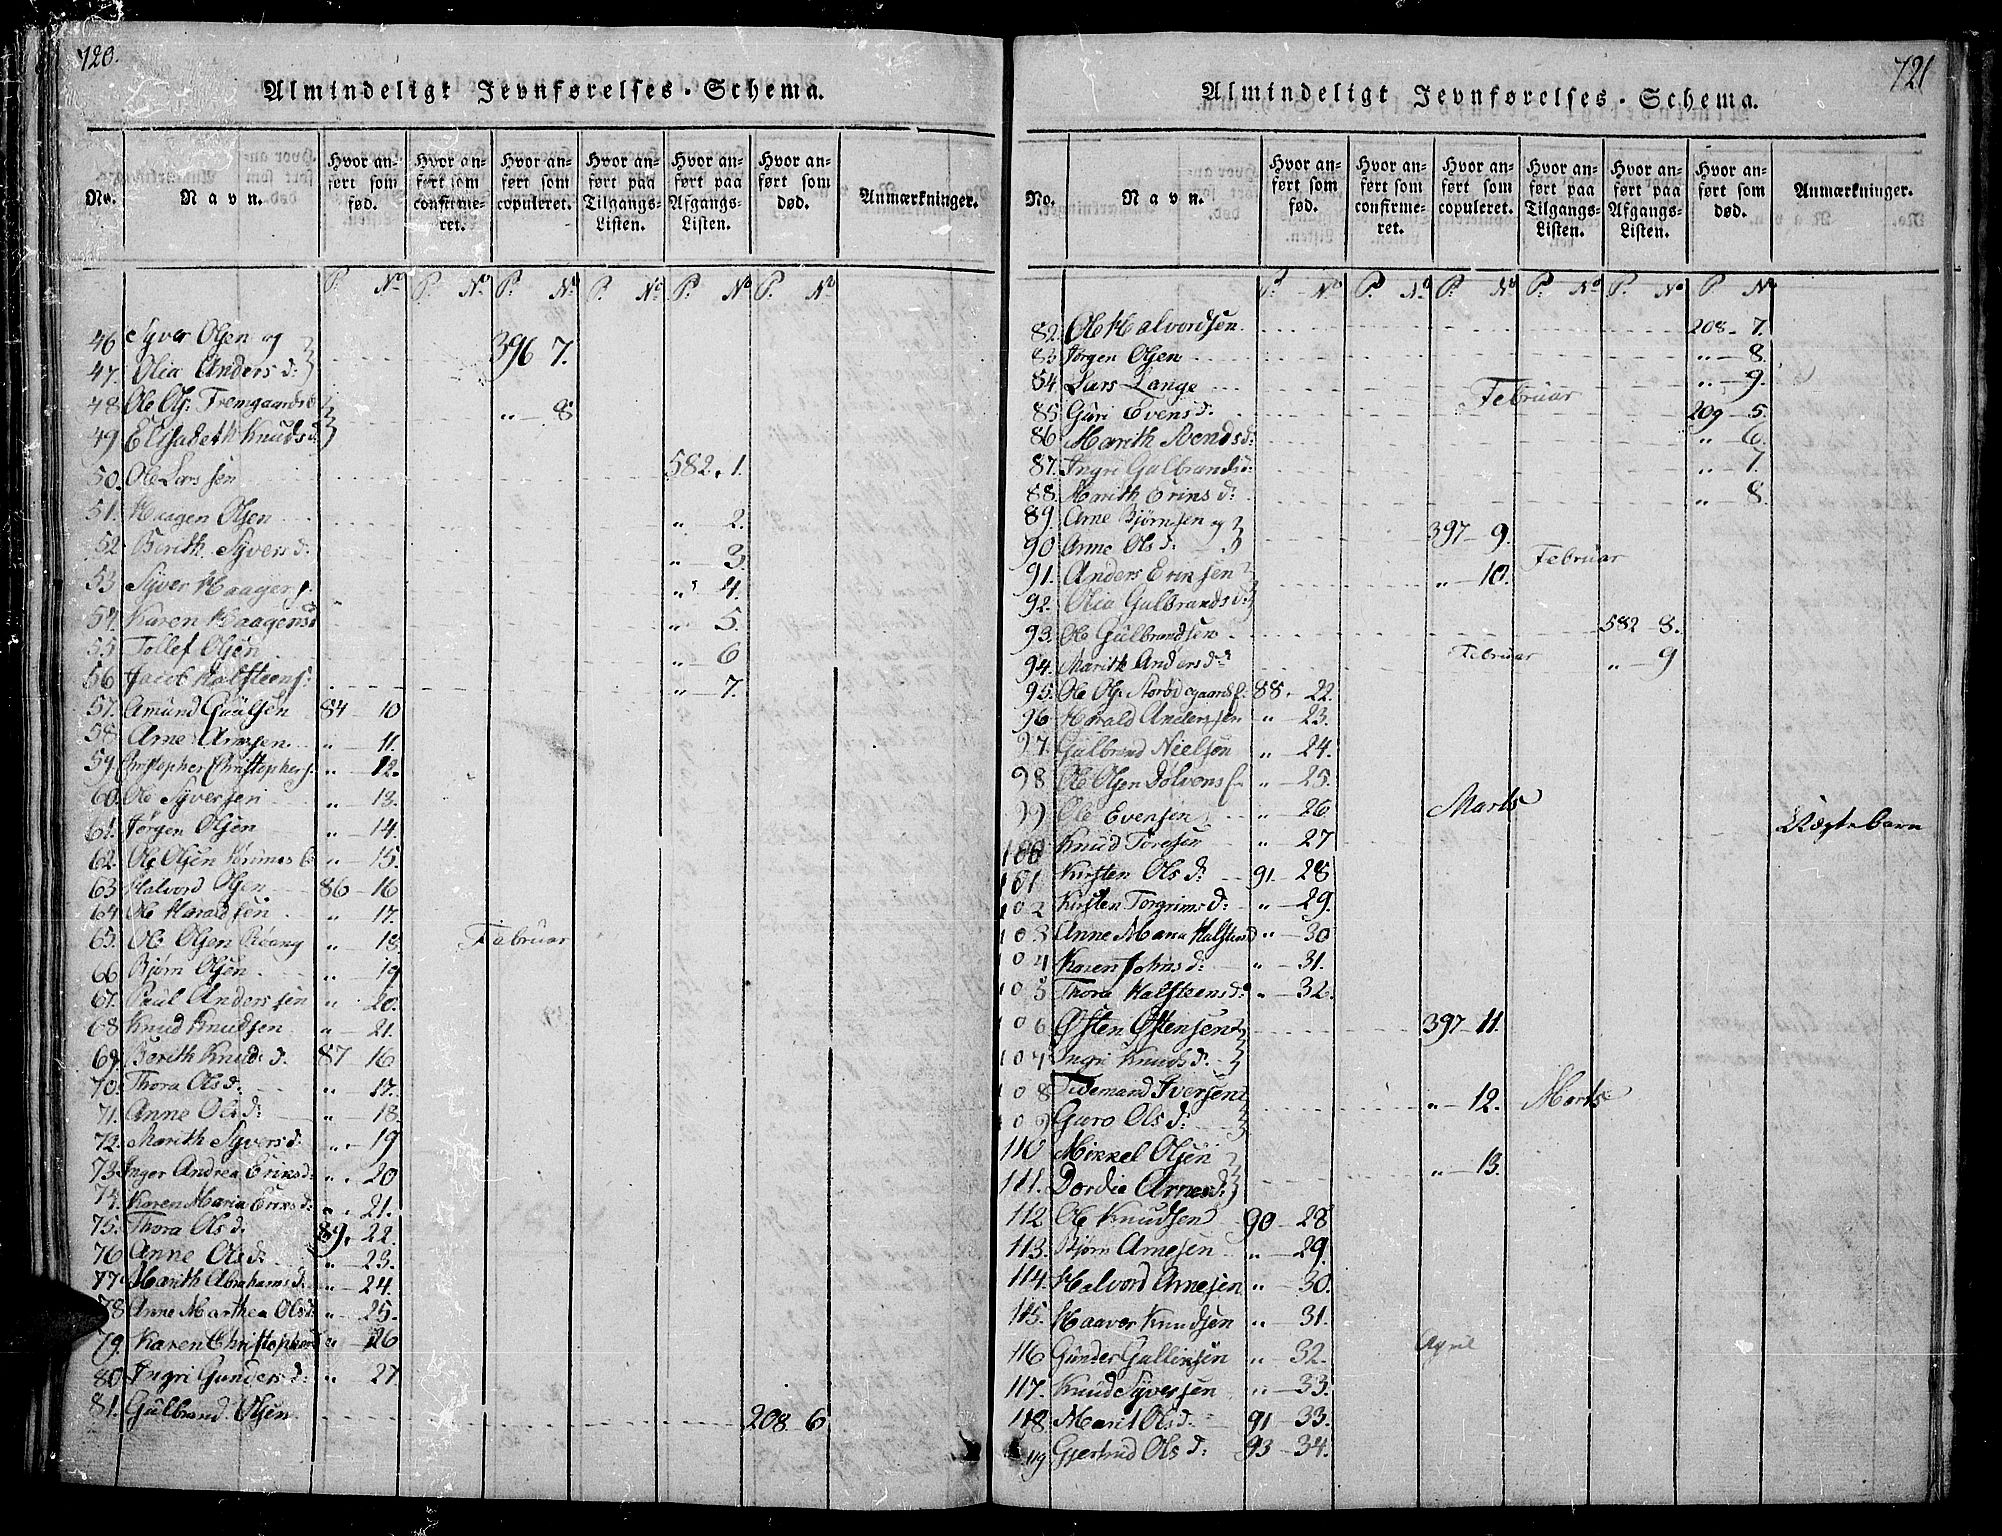 720.
Almindeligt Jevnførelses-Schema.
No. Navn. Hvor anført som fød. Hvor anført som confirmeret. Hvor anført som copuleret. Hvor anført paa Tilgangs-Listen. Hvor anført paa Afgangs-Listen. Hvor anført som død. Anmærkninger.
P. No P. No P. No P. No P. No P. No
46 Syver Olsen og
47. Olia Anders d: 396 7.
48 Ole Ols: Tremgaards
49 Elisabeth Knuds d: " 8
50. Ole Larssen 582. 1.
51. Haagen Olsen " 2.
52 Berith Syvers d: " 3.
53 Syver Haagens. " 4.
54. Karen Haagens d " 5.
55 Tollef Olsen " 6
56 Jacob Halsteens: " 7.
57. Amund Paulsen 84 10
58 Arne Arnesen " 11.
59. Christopher Christophers. " 12.
60. Ole Syversen " 13.
61. Jørgen Olsen " 14.
62. Ole Olsen " 15.
63 Halvord Olsen 86 16
64. Ole Haraldsen " 17.
65. Ole Olsen " 18 Februar
66 Bjørn Olsen " 19
67. Paul Anderssen " 20.
68 Knud Knudsen " 21.
69. Berith Knuds d. 87 16
70. Thora Ols d: " 17.
71. Anne Ols d: " 18.
72. Marith Syvers d: " 19
73 Inger Andrea Eriks d: " 20
74. Karen Maria Eriks d: " 21.
75. Thora Ols d: 89. 22.
76 Anne Ols d: " 23.
77 Marith Abrahams d: " 24.
78 Anne Marthea Ols d: " 25.
79. Karen Christophers d " 26
80. Ingri Gunders d: " 27.
81. Gulbrand Olsen 208 6
721
Almindeligt Jevnførelses-Schema.
No. Navn. Hvor anført som fød. Hvor anført som confirmeret. Hvor anført som copuleret. Hvor anført paa Tilgangs-Listen. Hvor anført paa Afgangs-Listen. Hvor anført som død. Anmærkninger.
P. No P. No P. No P. No P. No P No
82. Ole Halvordsen 208 7.
83 Jørgen Olsen " 8.
84 Lars Lange " 9.
Februar
85. Guri Evens d. 209 5.
86 Marith Svends d: " 6.
87. Ingri Gulbrands d: " 7.
88. Marith Eriks d: " 8.
89. Arne Bjørnsen og
90 Anne Ols d: 397 9.
Februar
91. Anders Eriksen " 10.
92. Olia Gulbrands d:
93. Ole Gulbrandsen 582 8.
94. Marith Anders d: Februar " 9
95. Ole Ols. 88. 22.
96 Harald Anderssen " 23.
97. Gulbrand Nielsen " 24.
98. Ole Olsen Dølvens " 25.
99 Ole Evensen " 26 Marts
Uægte barn
100 Knud Toresen " 27
101 Kirsten Ols d: 91. 28
102 Kirsten Torgrims d: " 29.
103 Anne Maria Halsteens d " 30
104 Karen Johns d: " 31.
105 Thora Halsteens d: " 32.
106 Østen Østensen 397 11.
107 Ingri Knuds d:
108 Tidemand Iversen " 12. Marts
109 Guro Ols d:
110 Mikkel Olsen " 13.
111. Dordie Arnes d:
112 Ole Knudsen 90 28
113. Bjørn Arnesen " 29.
114. Halvord Arnesen " 30.
115. Haavor Knudsen " 31.
116 Gunder Gullicksen " 32. April
117. Knud Syversen " 33.
118. Marit Ols d: 91 33.
119 Gjertrud Ols d: 93 34.